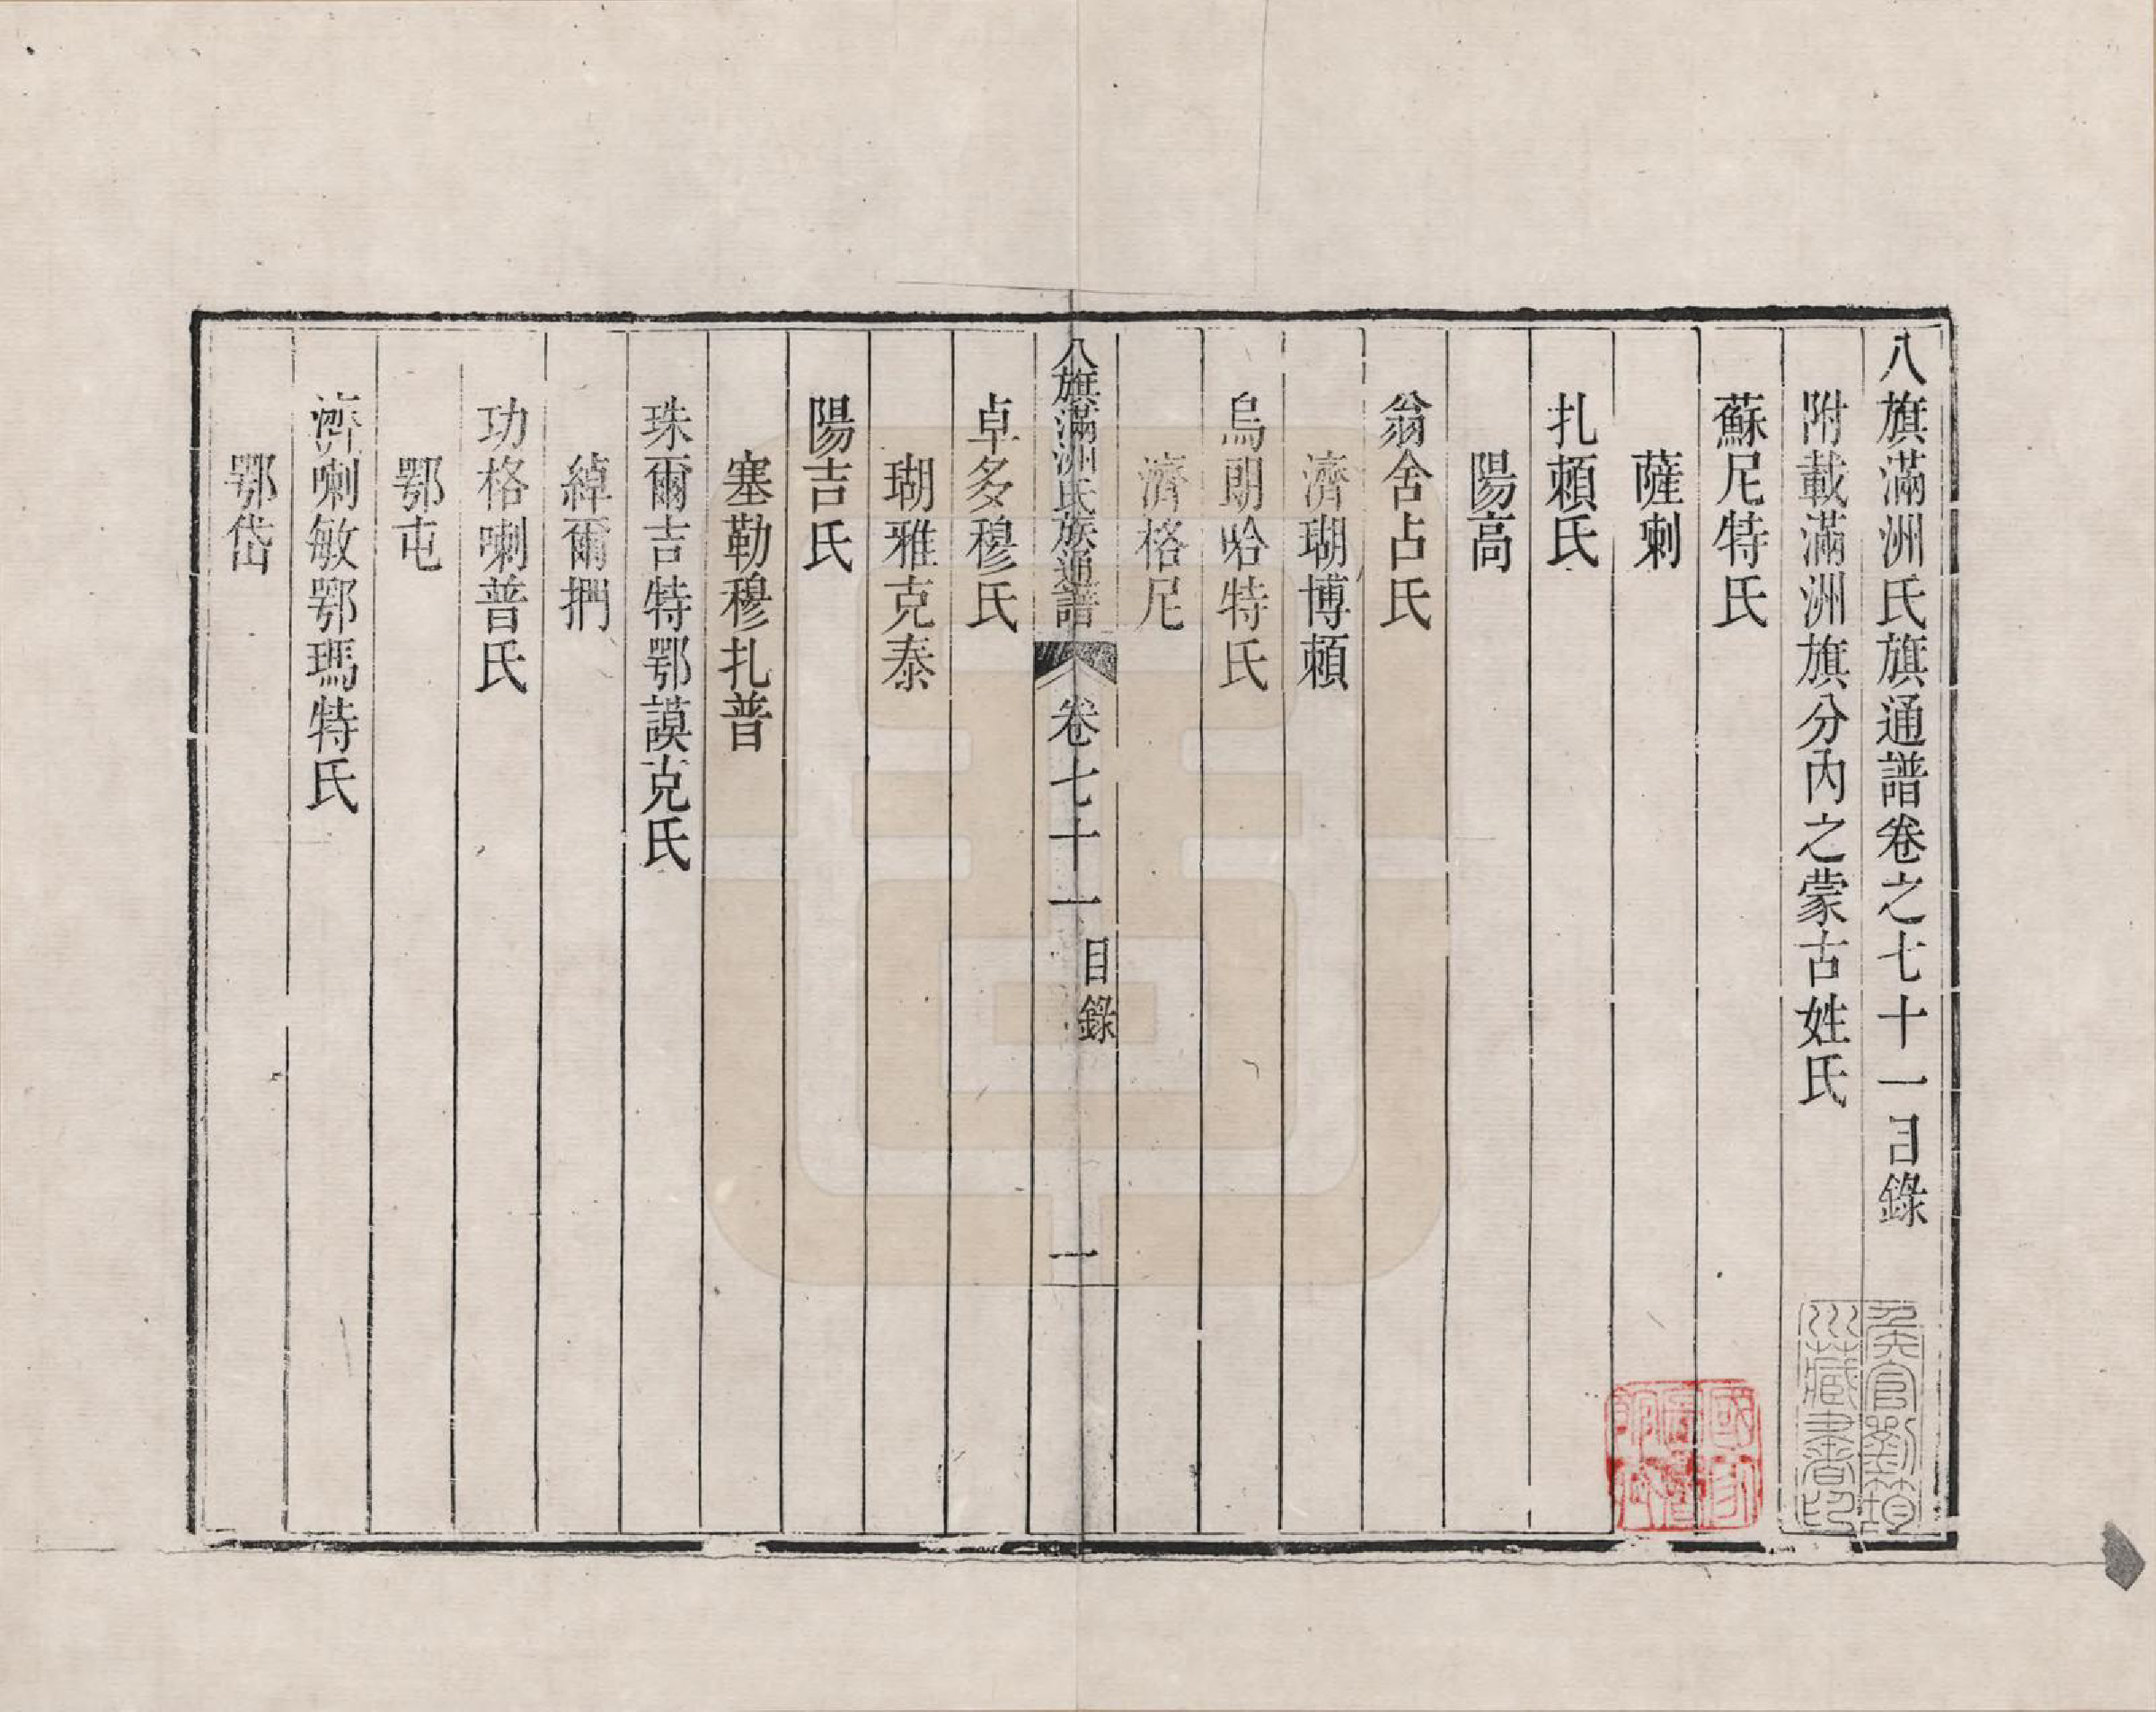 八旗滿洲氏旗通譜卷之七十一目錄
附載滿洲旗分內之蒙古姓氏
蘇尼特氏
薩喇
扎賴氏
陽高
翁舍占氏
濟瑚博賴
烏朗哈特氏
濟格尼
八旗滿洲氏族通譜
卷七十一
目錄
一
卓多穆氏
瑚雅克泰
陽吉氏
塞勒穆扎普
珠爾吉特鄂謨克氏
綽爾捫
功格喇普氏
鄂屯
濟喇敏鄂瑪特氏
鄂岱
侯官劉筠
川藏書印